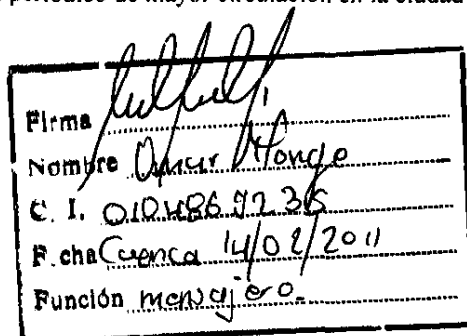 periódicos de mayor circulación en la ciudad
Firma
Nombre Omar Monge
C. I.
F.cha Cuenca 14/02/2011
Función mensajero.